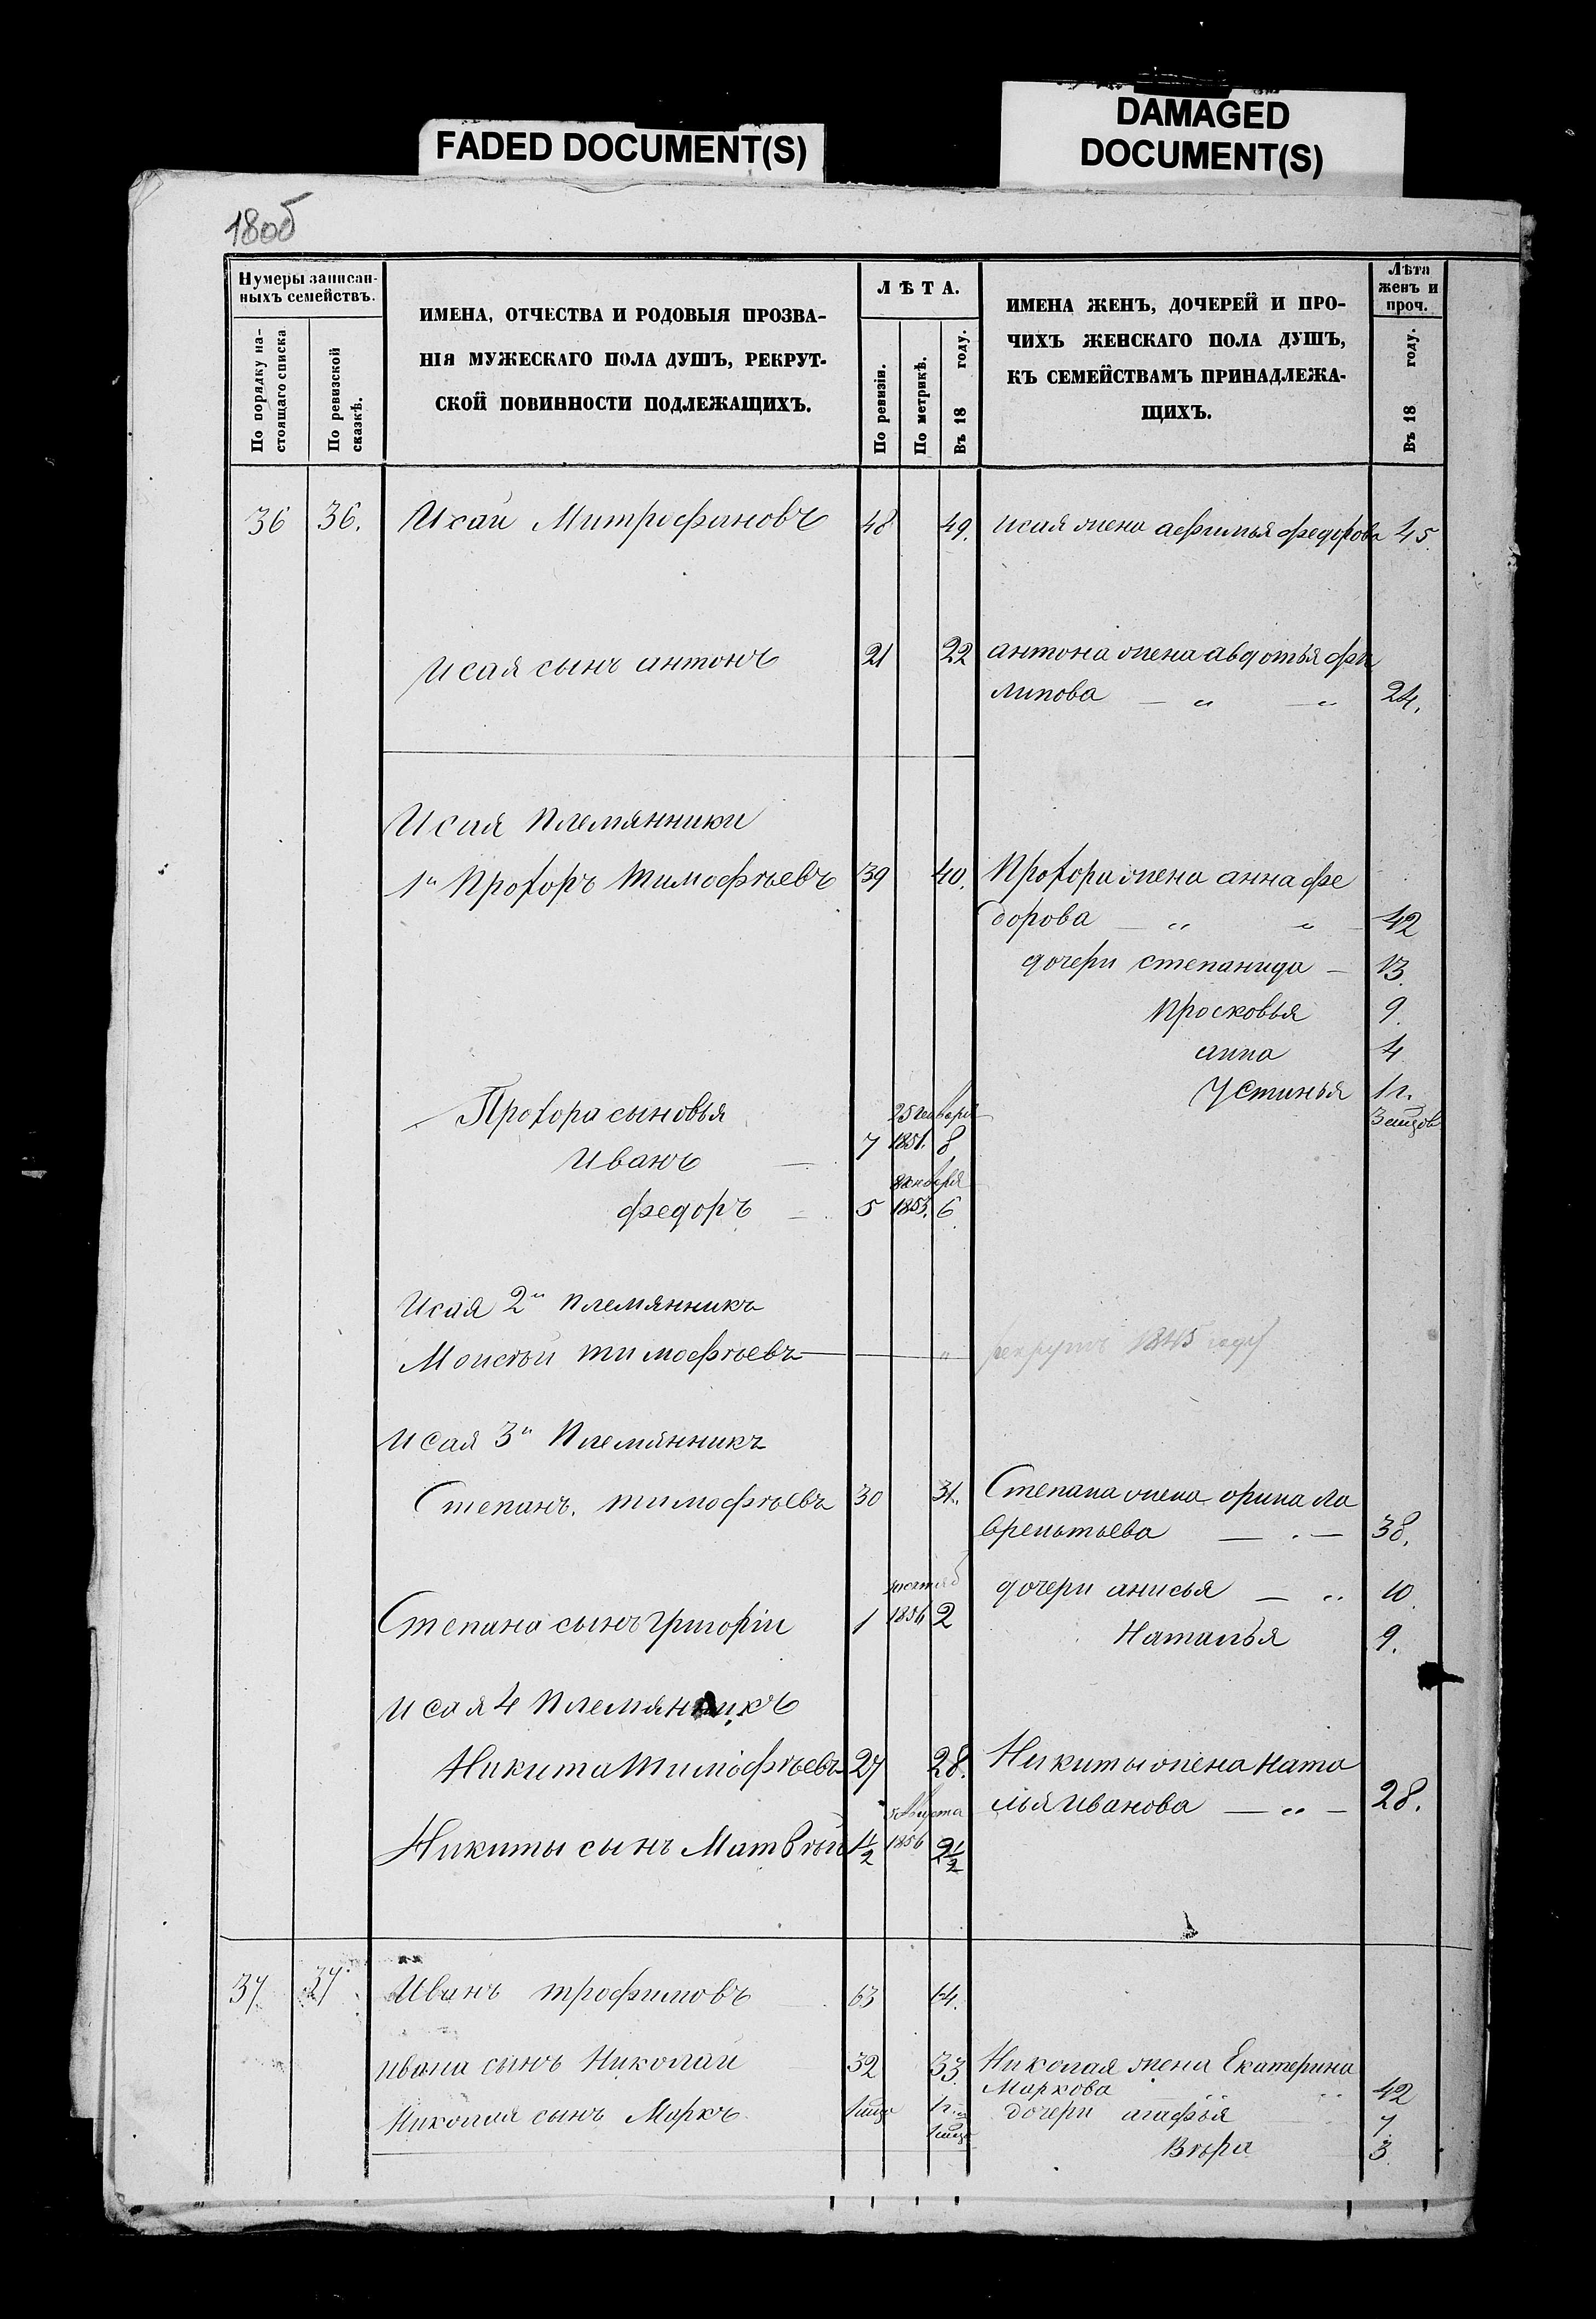 FADED DOCUMENT(S)
DAMAGED
DOCUMENT(S)
180об
Нумеры записан-
ныхъ семействъ.
По порядку на-
стоящаго списка
По ревизской
сказкѣ.
ИМЕНА, ОТЧЕСТВА И РОДОВЫЯ ПРОЗВА-
НІЯ МУЖЕСКАГО ПОЛА ДУШЪ, РЕКРУТ-
СКОЙ ПОВИННОСТИ ПОДЛЕЖАЩИХЪ.
ЛѢТА.
По ревизіи.
По метрикѣ.
Въ 18 году.
ИМЕНА ЖЕНЪ, ДОЧЕРЕЙ И ПРО-
ЧИХЪ ЖЕНСКАГО ПОЛА ДУШЪ,
КЪ СЕМЕЙСТВАМЪ ПРИНАДЛЕЖА-
ЩИХЪ.
Лѣта
женъ и
проч.
Въ 18 году.
36 36. Исаи Митрофановъ 48 49. исая жена афимья федорова 45.
Исая сынъ антонъ 21 22 антона жена авдотья фи
липова — „ — „ 24.
Исая Племянники
1й Прохоръ Тимофѣевъ 39 40. Прохора жена анна фе
дорова — „ „ — 42
дочери степанида — 13.
Просковья 9.
анна 4
Устинья 1 г.
Прохора сыновья 25 января
Иванъ — 7 1851. 8
федоръ — 5 1853. 6
Исая 2й племянникъ
Моисѣй тимофѣевъ — „ рекрутъ 1845 году
исая 3й Племянникъ
Степанъ. тимофѣевъ 30 31. Степана жена орина ла
врентьева — . — 38.
дочери анисья — „ 10
Степана сынъ григорій 1 1856 2
Наталья 9.
исая 4 Племянникъ
Никита Тимофѣевъ 27 28. Никиты жена ната
лья иванова — „ — 28.
августа
Никиты сынъ Матвѣй 1 1/2 1856 2 1/2
37 37. Иванъ трофимовъ 63 64.
ивана сынъ Николай 32 33. Николая жена Екатерина
Маркова 42
Николая сынъ Маркъ. дочери агафья 7
Вѣра 3.